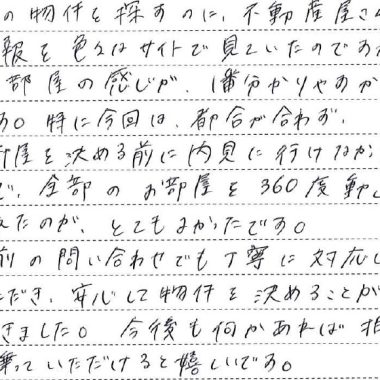 の物件を探すのに、不動産屋さん
報を色々なサイトで見ていたのですが
部屋の感じが、1番分かりやすか
す。特に今回は、都合が合わず、
部屋を決める前に内見に行けなか
で、全部のお部屋を360度動し
えたのが、とてもよかったです。
前の問い合わせでも丁寧に対応し
ただき、安心して物件を決めることが
きました。今後も何かあれば相
乗っていただけると嬉しいです。